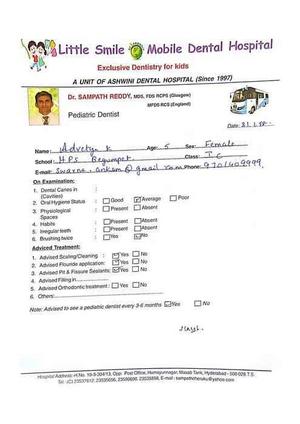 Little Smile Mobile Dental Hospital
Exclusive Dentistry for kids
A UNIT OF ASHWINI DENTAL HOSPITAL (Since 1997)
Dr. SAMPATH REDDY, MDS, FDS RCPS (Glasgow)
MFDS RCS (England)
Pediatric Dentist
Date:
Name: K Age: 5 Sex: Female
School: HPS Begumpet Class:
E-mail: @gmail.com Phone:
On Examination:
1. Dental Caries in
(Cavities)
2. Oral Hygiene Status Good Average Poor
3. Physiological Present Absent
Spaces
4. Habits Present Absent
5. Irregular teeth Present Absent
6. Brushing twice Yes No
Adviced Treatment:
1. Advised Scaling/Cleaning: Yes No
2. Advised Flouride application: Yes No
3. Advised Pit & Fissure Sealants: Yes No
4. Advised Filling in
5. Advised Orthodontic treatment: Yes No
6. Others:
Note: Advised to see a pediatric dentist every 3-6 months Yes No
Hospital Address: H.No. 10-3-304/13, Opp. Post Office, Humayunnagar, Masab Tank, Hyderabad - 500 028 T.S.